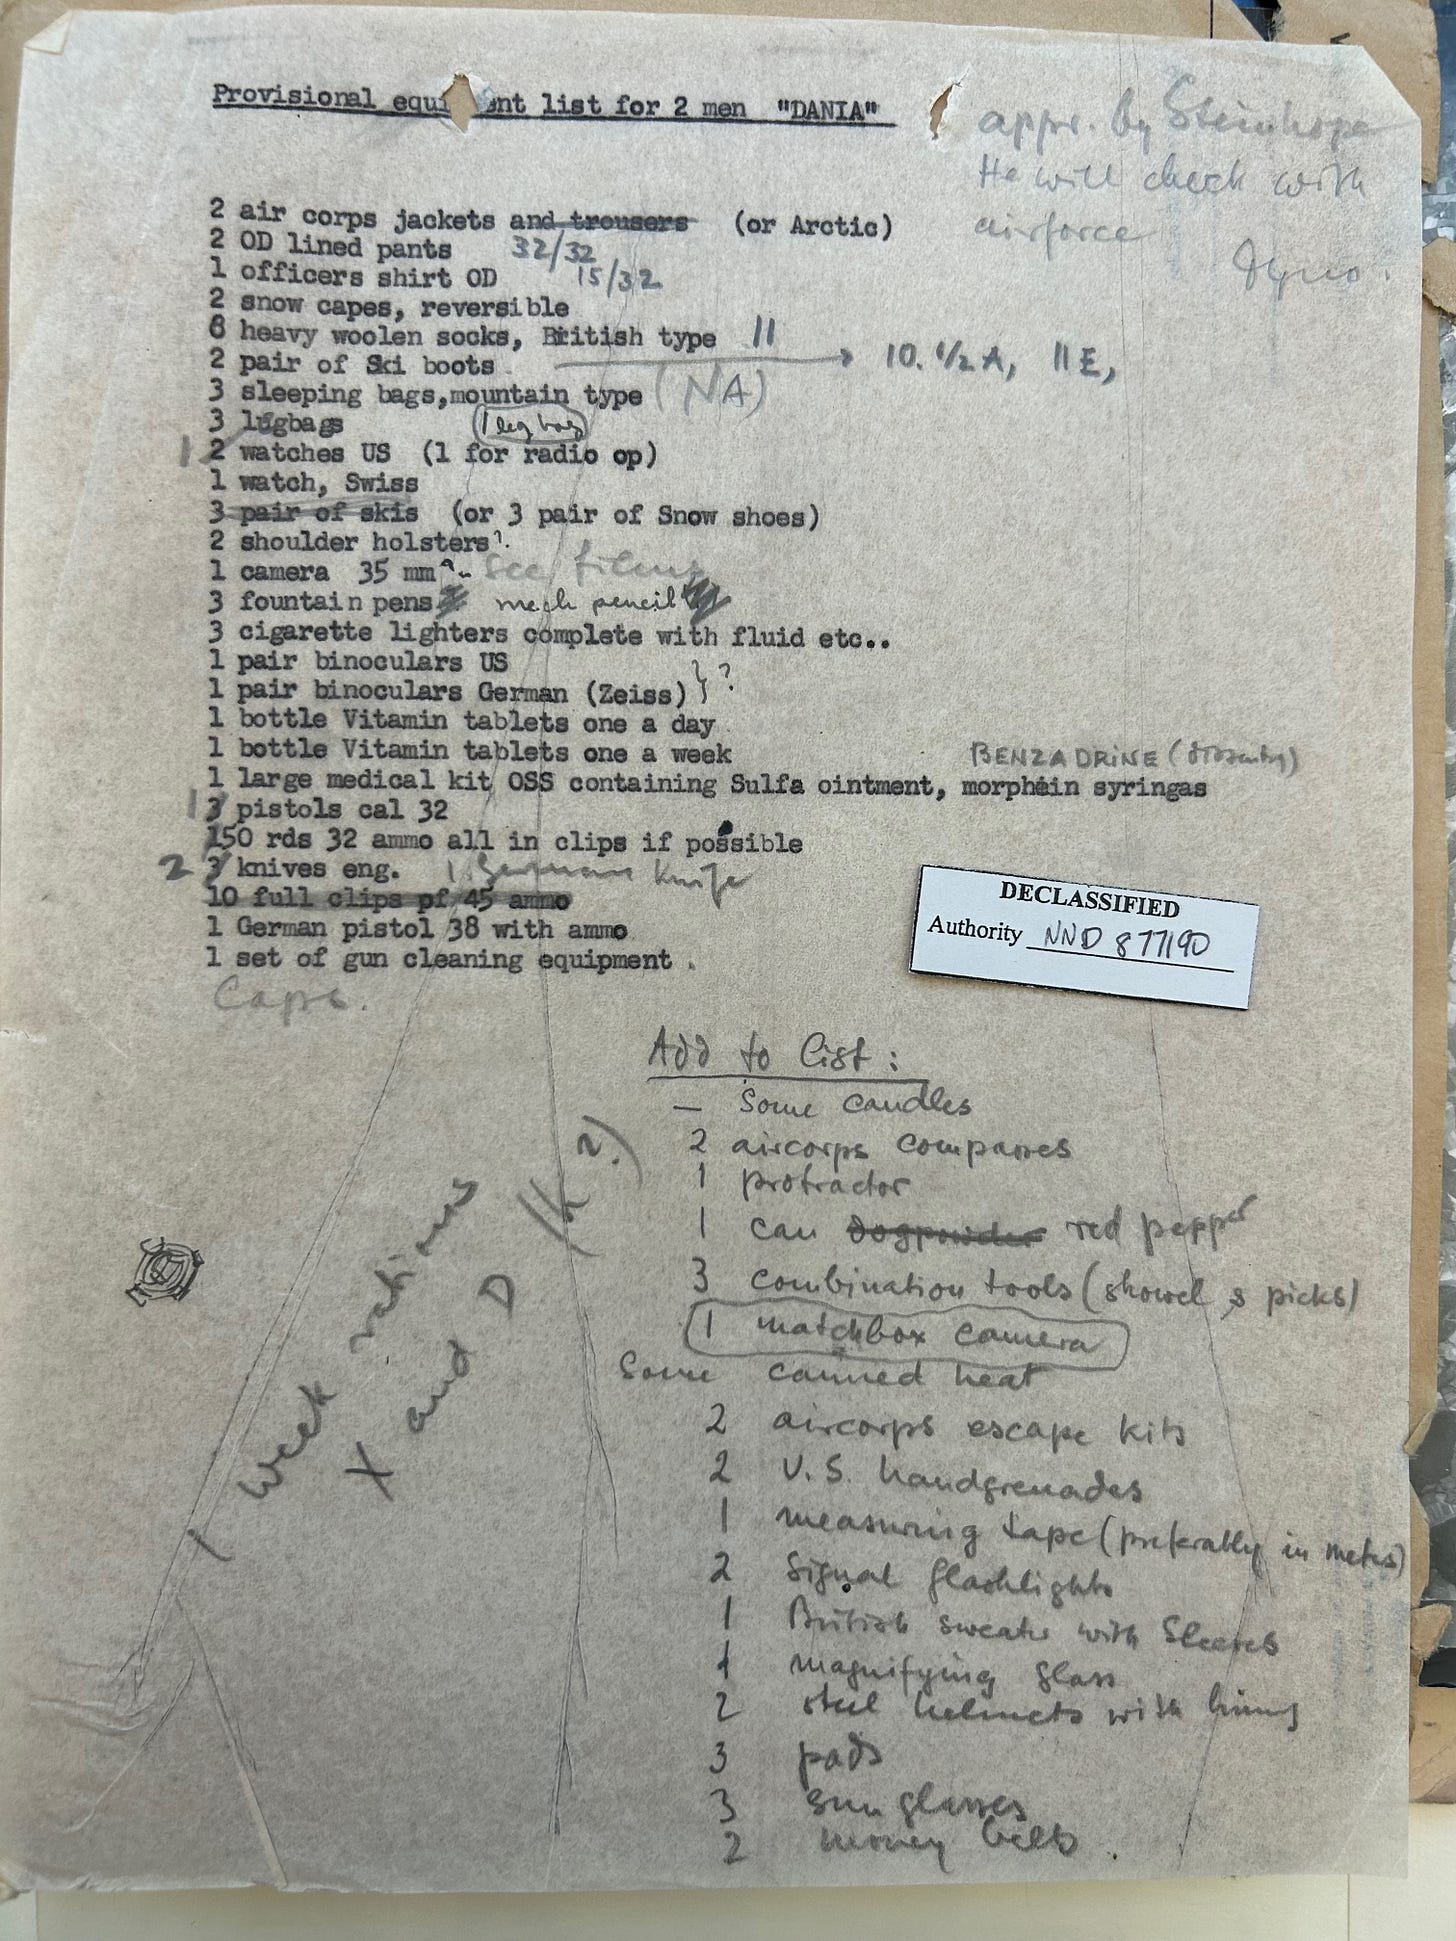 Provisional equi ent list for 2 men "DANIA"
appr. by
He will check with
airforce
2 air corps jackets and trousers (or Arctic)
2 OD lined pants 32/32
1 officers shirt OD 15/32
2 snow capes, reversible
6 heavy woolen socks, British type 11
2 pair of Ski boots 10. 1/2 A, 11 E,
3 sleeping bags,mountain type (NA)
3 lugbags 1 leg bag
1 2 watches US (1 for radio op)
1 watch, Swiss
3 pair of skis (or 3 pair of Snow shoes)
2 shoulder holsters
1 camera 35 mm see films
3 fountain pens mech pencil
3 cigarette lighters complete with fluid etc..
1 pair binoculars US
1 pair binoculars German (Zeiss) } ?
1 bottle Vitamin tablets one a day
1 bottle Vitamin tablets one a week
BENZADRINE
1 large medical kit OSS containing Sulfa ointment, morphein syringas
1 3 pistols cal 32
150 rds 32 ammo all in clips if possible
2 3 knives eng. 1 German Knife
10 full clips pf 45 ammo
1 German pistol 38 with ammo
1 set of gun cleaning equipment .
Caps.
DECLASSIFIED
Authority NND 877190
Add to list :
— Some candles
2 aircorps compasses
1 protractor
1 can dogpowder red pepper
3 combination tools (showel s picks)
1 matchbox camera
Some canned heat
2 aircorps escape kits
2 U.S. handgrenades
1 measuring tape (preferably in meters)
2 Signal flashlights
1 British sweater with Sleeves
1 magnifying glass
2 steel helmets with lining
3 pads
3 sun glasses
2 money belts
1 week rations
X and D